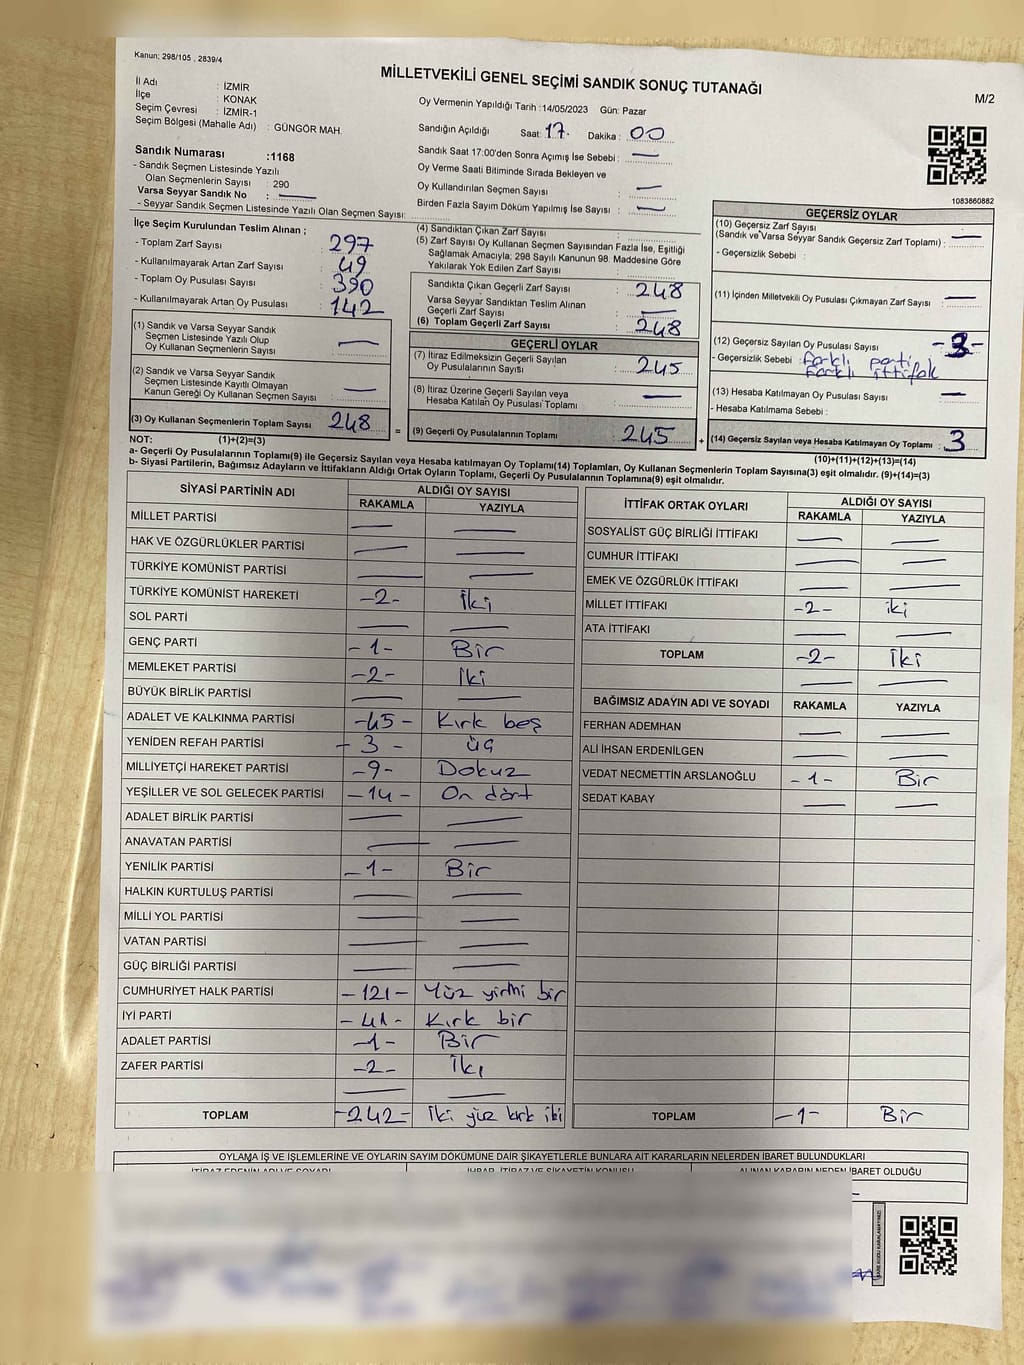 Kanun: 298/105 , 2839/4
MİLLETVEKİLİ GENEL SEÇİMİ SANDIK SONUÇ TUTANAĞI
M/2
İl Adı : İZMİR
İlçe : KONAK
Seçim Çevresi : İZMİR-1
Seçim Bölgesi (Mahalle Adı) : GÜNGÖR MAH.
Sandık Numarası :1168
- Sandık Seçmen Listesinde Yazılı
Olan Seçmenlerin Sayısı : 290
Varsa Seyyar Sandık No : —
- Seyyar Sandık Seçmen Listesinde Yazılı Olan Seçmen Sayısı:
Oy Vermenin Yapıldığı Tarih :14/05/2023 Gün: Pazar
Sandığın Açıldığı Saat: 17. Dakika : 00
Sandık Saat 17:00'den Sonra Açılmış İse Sebebi : —
Oy Verme Saati Bitiminde Sırada Bekleyen ve
Oy Kullandırılan Seçmen Sayısı : —
Birden Fazla Sayım Döküm Yapılmış İse Sayısı : —
1083860882
İlçe Seçim Kurulundan Teslim Alınan ;
- Toplam Zarf Sayısı : 297
- Kullanılmayarak Artan Zarf Sayısı : 49
- Toplam Oy Pusulası Sayısı : 390
- Kullanılmayarak Artan Oy Pusulası : 142
(1) Sandık ve Varsa Seyyar Sandık
Seçmen Listesinde Yazılı Olup
Oy Kullanan Seçmenlerin Sayısı : —
(2) Sandık ve Varsa Seyyar Sandık
Seçmen Listesinde Kayıtlı Olmayan
Kanun Gereği Oy Kullanan Seçmen Sayısı : —
(3) Oy Kullanan Seçmenlerin Toplam Sayısı : 248
(4) Sandıktan Çıkan Zarf Sayısı :
(5) Zarf Sayısı Oy Kullanan Seçmen Sayısından Fazla İse, Eşitliği
Sağlamak Amacıyla; 298 Sayılı Kanunun 98. Maddesine Göre
Yakılarak Yok Edilen Zarf Sayısı :
Sandıkta Çıkan Geçerli Zarf Sayısı : 248
Varsa Seyyar Sandıktan Teslim Alınan
Geçerli Zarf Sayısı : —
(6) Toplam Geçerli Zarf Sayısı : 248
GEÇERLİ OYLAR
(7) İtiraz Edilmeksizin Geçerli Sayılan
Oy Pusulalarının Sayısı : 245
(8) İtiraz Üzerine Geçerli Sayılan veya
Hesaba Katılan Oy Pusulası Toplamı : —
= (9) Geçerli Oy Pusulalarının Toplamı : 245
GEÇERSİZ OYLAR
(10) Geçersiz Zarf Sayısı
(Sandık ve Varsa Seyyar Sandık Geçersiz Zarf Toplamı) : —
- Geçersizlik Sebebi :
(11) İçinden Milletvekili Oy Pusulası Çıkmayan Zarf Sayısı : —
(12) Geçersiz Sayılan Oy Pusulası Sayısı : -3-
- Geçersizlik Sebebi : farklı parti
farklı ittifak
(13) Hesaba Katılmayan Oy Pusulası Sayısı : —
- Hesaba Katılmama Sebebi :
+ (14) Geçersiz Sayılan veya Hesaba Katılmayan Oy Toplamı : 3
NOT: (1)+(2)=(3)
(10)+(11)+(12)+(13)=(14)
a- Geçerli Oy Pusulalarının Toplamı(9) ile Geçersiz Sayılan veya Hesaba katılmayan Oy Toplamı(14) Toplamları, Oy Kullanan Seçmenlerin Toplam Sayısına(3) eşit olmalıdır. (9)+(14)=(3)
b- Siyasi Partilerin, Bağımsız Adayların ve İttifakların Aldığı Ortak Oyların Toplamı, Geçerli Oy Pusulalarının Toplamına(9) eşit olmalıdır.
SİYASİ PARTİNİN ADI ALDIĞI OY SAYISI
RAKAMLA YAZIYLA
MİLLET PARTİSİ — —
HAK VE ÖZGÜRLÜKLER PARTİSİ — —
TÜRKİYE KOMÜNİST PARTİSİ — —
TÜRKİYE KOMÜNİST HAREKETİ -2- İki
SOL PARTİ — —
GENÇ PARTİ -1- Bir
MEMLEKET PARTİSİ -2- İki
BÜYÜK BİRLİK PARTİSİ — —
ADALET VE KALKINMA PARTİSİ -45- Kırk beş
YENİDEN REFAH PARTİSİ -3- üç
MİLLİYETÇİ HAREKET PARTİSİ -9- Dokuz
YEŞİLLER VE SOL GELECEK PARTİSİ -14- On dört
ADALET BİRLİK PARTİSİ — —
ANAVATAN PARTİSİ — —
YENİLİK PARTİSİ -1- Bir
HALKIN KURTULUŞ PARTİSİ — —
MİLLİ YOL PARTİSİ — —
VATAN PARTİSİ — —
GÜÇ BİRLİĞİ PARTİSİ — —
CUMHURİYET HALK PARTİSİ -121- Yüz yirmi bir
İYİ PARTİ -41- Kırk bir
ADALET PARTİSİ -1- Bir
ZAFER PARTİSİ -2- İki
— —
TOPLAM -242- İki yüz kırk iki
İTTİFAK ORTAK OYLARI ALDIĞI OY SAYISI
RAKAMLA YAZIYLA
SOSYALİST GÜÇ BİRLİĞİ İTTİFAKI — —
CUMHUR İTTİFAKI — —
EMEK VE ÖZGÜRLÜK İTTİFAKI — —
MİLLET İTTİFAKI -2- iki
ATA İTTİFAKI — —
TOPLAM -2- İki
— —
BAĞIMSIZ ADAYIN ADI VE SOYADI RAKAMLA YAZIYLA
FERHAN ADEMHAN — —
ALİ İHSAN ERDENİLGEN — —
VEDAT NECMETTİN ARSLANOĞLU -1- Bir
SEDAT KABAY — —
TOPLAM -1- Bir
OYLAMA İŞ VE İŞLEMLERİNE VE OYLARIN SAYIM DÖKÜMÜNE DAİR ŞİKAYETLERLE BUNLARA AİT KARARLARIN NELERDEN İBARET BULUNDUKLARI
İTİRAZ EDENİN ADI VE SOYADI İHBAR, İTİRAZ VE ŞİKAYETİN KONUSU ALINAN KARARIN NEDEN İBARET OLDUĞU